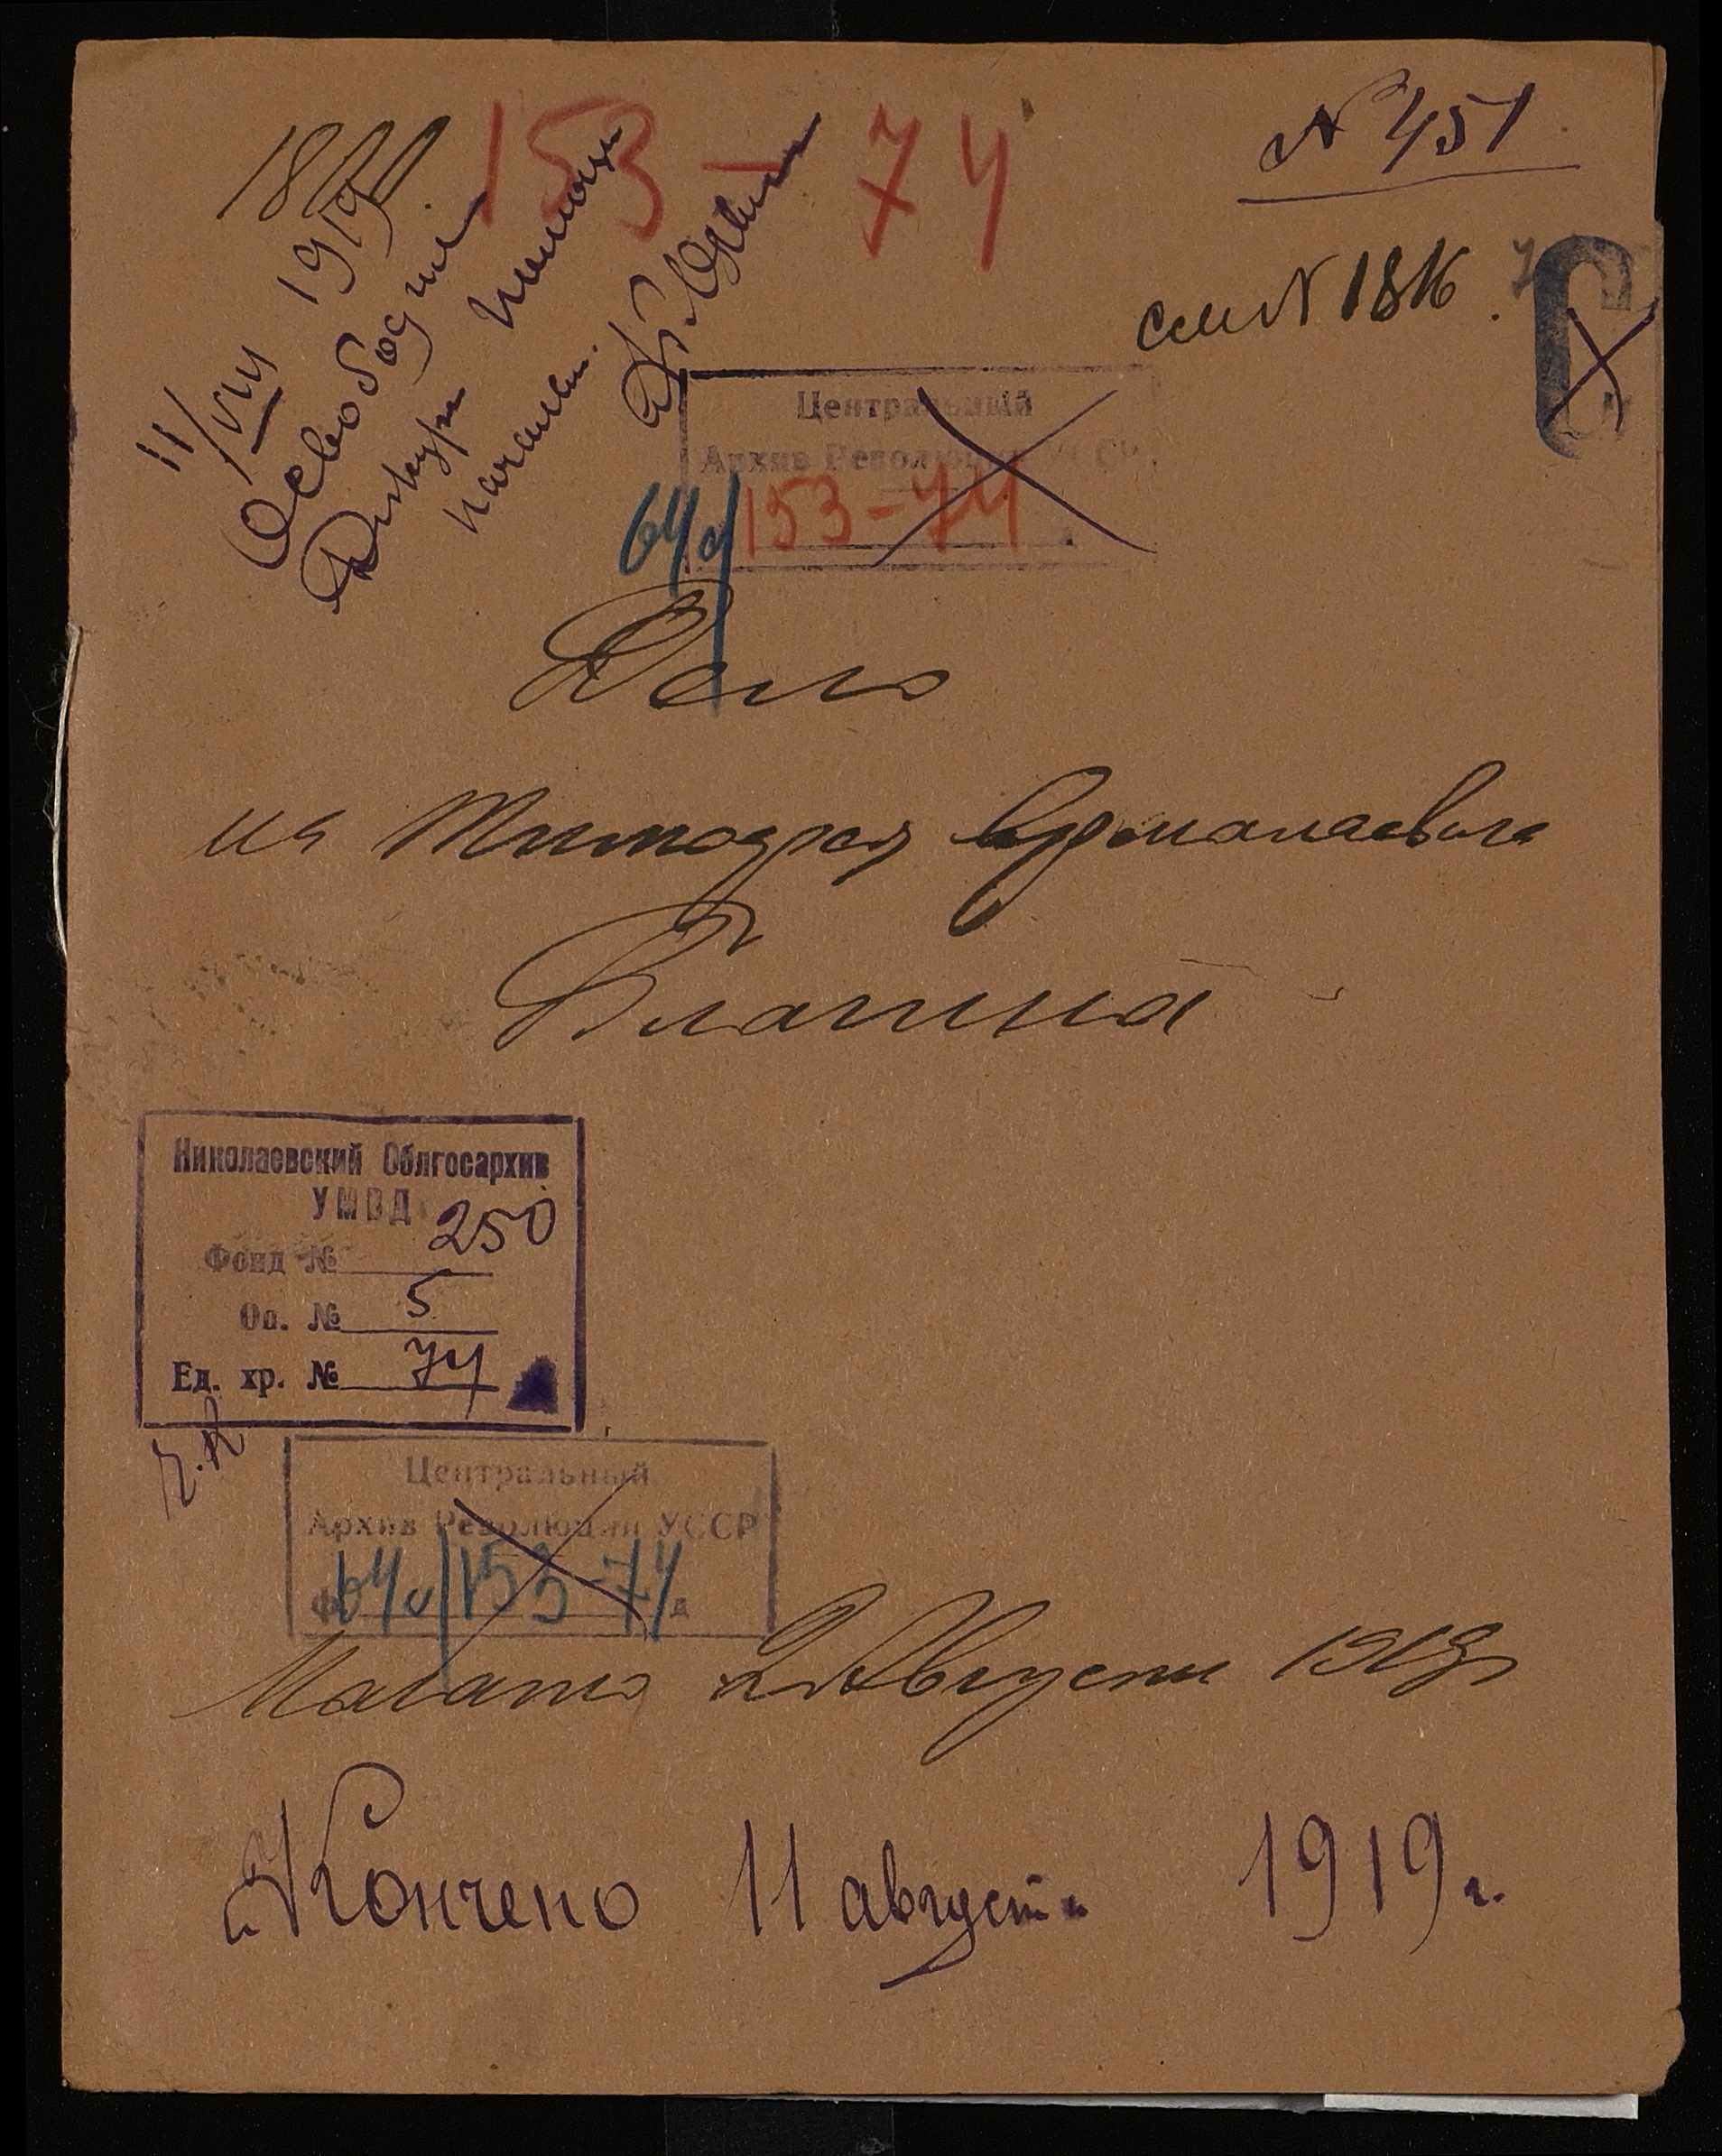 153-74
№ 451
см № 1816.
11/VIII 1919
Освободил
Дежур. Помощн
начальн.
Центральный
Архив Революции УССР
64с/153-74
Дело
на Тимофея
Николаевский Облгосархив
УМВД
Фонд № 250
Оп. № 5
Ед. хр. № 74
Центральный
Архив Революции УССР
Ф 64с/153-74 д
Начато 2 Августа 1919г
Кончено 11 августа 1919г.